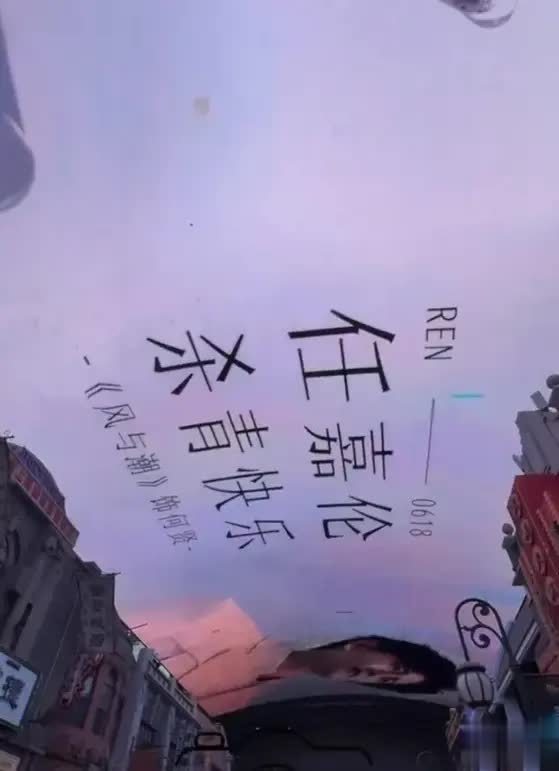 REN — 0618
任嘉伦
杀青快乐
-《风与潮》饰何贤-